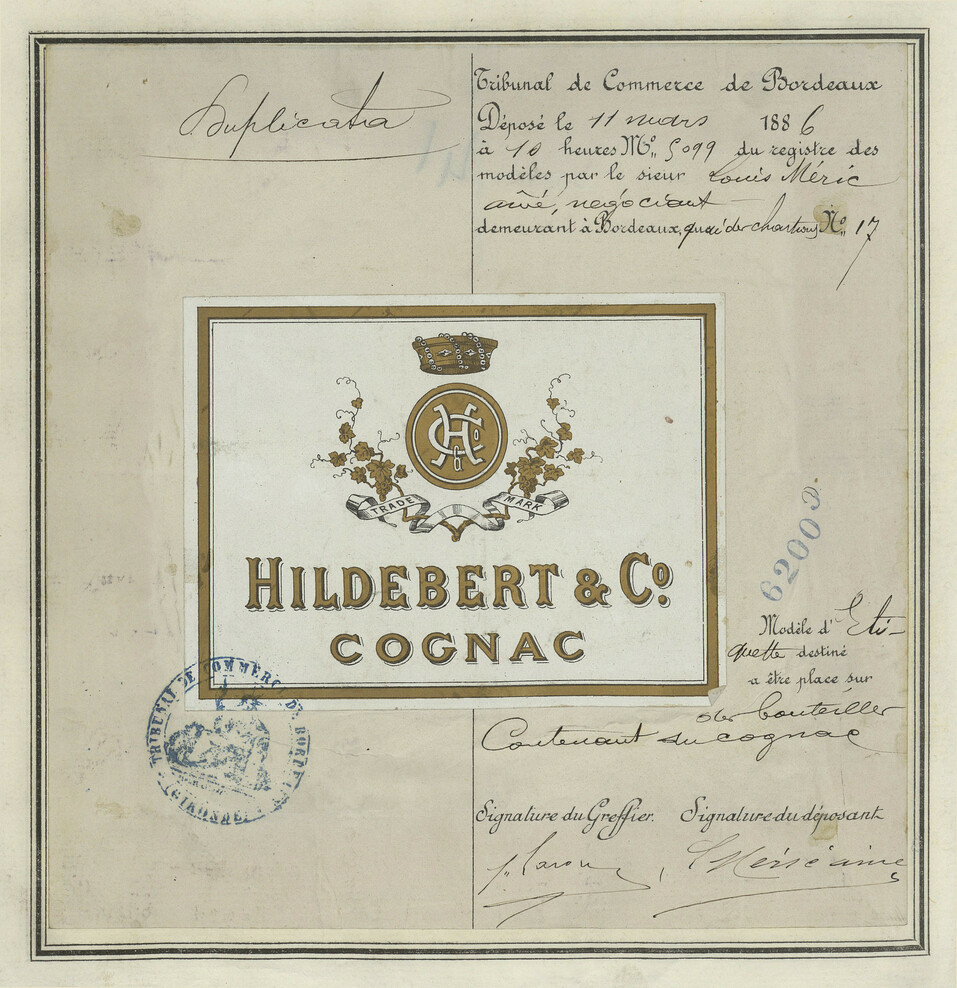 Duplicata
Tribunal de Commerce de Bordeaux
Déposé le 11 mars 1886
à 10 heures Nº 5099 du registre des
modèles par le sieur Louis Méric
aîné, négociant
demeurant à Bordeaux, quai des chartrons Nº 17
HCº
TRADE MARK
HILDEBERT & Cº
COGNAC
62009
Modèle d'Eti-
quette destiné
a être place sur
des bouteilles
Contenant du cognac
TRIBUNAL DE COMMERCE DE BORDEAUX
(GIRONDE)
Signature du Greffier. Signature du déposant
L Méric aîné